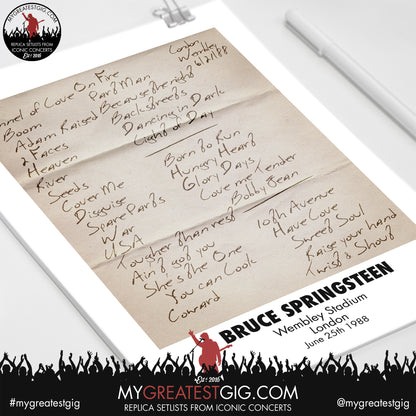 MYGREATESTGIG.COM
REPLICA SETLISTS FROM
ICONIC CONCERTS
Est 2015
London
Wembley
6/2/88
nnel of Love On Fire
Boom Part Man
Adam Raised Because the night
2 Faces Backstreets
Heaven Dancing in Dark
River Light of Day
Seeds
Cover Me
Disguise
Spare Parts
War
USA
Tougher than rest
Ain't got you
She's the One
You can Look
Coward
Born to Run
Hungry Heart
Glory Days
Love me Tender
Bobby Jean
10th Avenue
Have Love
Sweet Soul
Raise your hand
Twist & Shout
BRUCE SPRINGSTEEN
Wembley Stadium
London
June 25th 1988
Est 2015
MYGREATESTGIG.COM
REPLICA SETLISTS FROM ICONIC CONCERTS
#mygreatestgig
@mygreatestgig